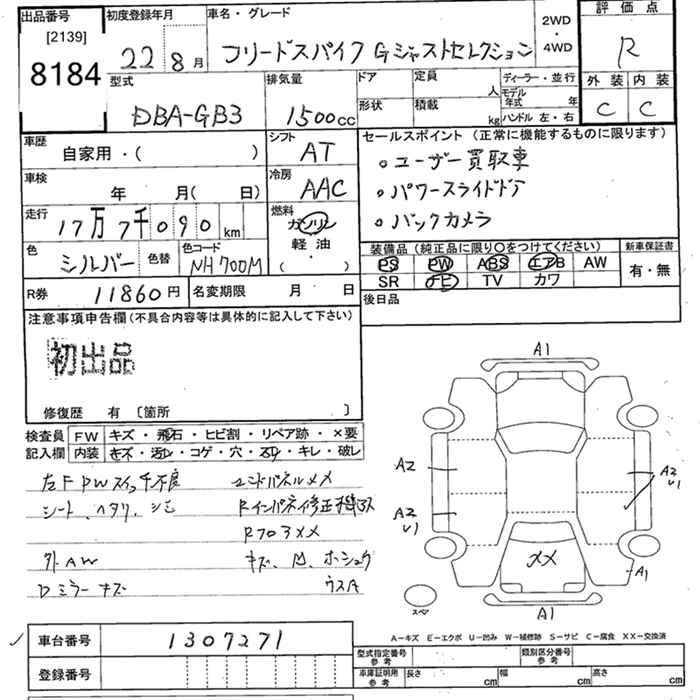 出品番号
[2139]
8184
初度登録年月
22 8月
車名・グレード
フリードスパイク Gジャストセレクション
2WD
・
4WD
評価点
R
外装 内装
C C
型式
DBA-GB3
排気量
1500cc
ドア
形状
定員
人
積載
kg
ディーラー・並行
モデル年式 年
ハンドル 左・右
車歴
自家用・( )
シフト
AT
車検
年 月( 日)
冷房
AAC
走行
17万7千090km
燃料
ガソリン
軽油
( ・ )
色
シルバー
色替
色コード
NH700M
R券 11860円
名変期限 月 日
セールスポイント(正常に機能するものに限ります)
。ユーザー買取車
。パワースライドドア
。バックカメラ
装備品(純正品に限り〇をつけてください)
PS PW ABS エアB AW
SR ナビ TV カワ
新車保証書
有・無
後日品
注意事項申告欄(不具合内容等は具体的に記入して下さい)
初出品
修復歴 有 〔箇所 〕
検査員記入欄
FW キズ・飛石・ヒビ割・リペア跡・×要
内装 キズ・汚レ・コゲ・穴・スレ・キレ・破レ
左F PWスイッチ不良
シート、ヘタリ、シミ
外AW
Dミラーキズ
エンドパネルメメ
Rインパネ修正機跡
Rフロアメメ
キズ、凹、ホシュウ
ウスA
A1
A2
A2
U1
A2
U1
A1
××
A1
スペア
A-キズ E-エクボ U-凹み W-補修跡 S-サビ C-腐食 XX-交換済
車台番号 1307271
登録番号
型式指定番号
参考
類別区分番号
参考
車庫証明用
参考
長さ cm
幅 cm
高さ cm